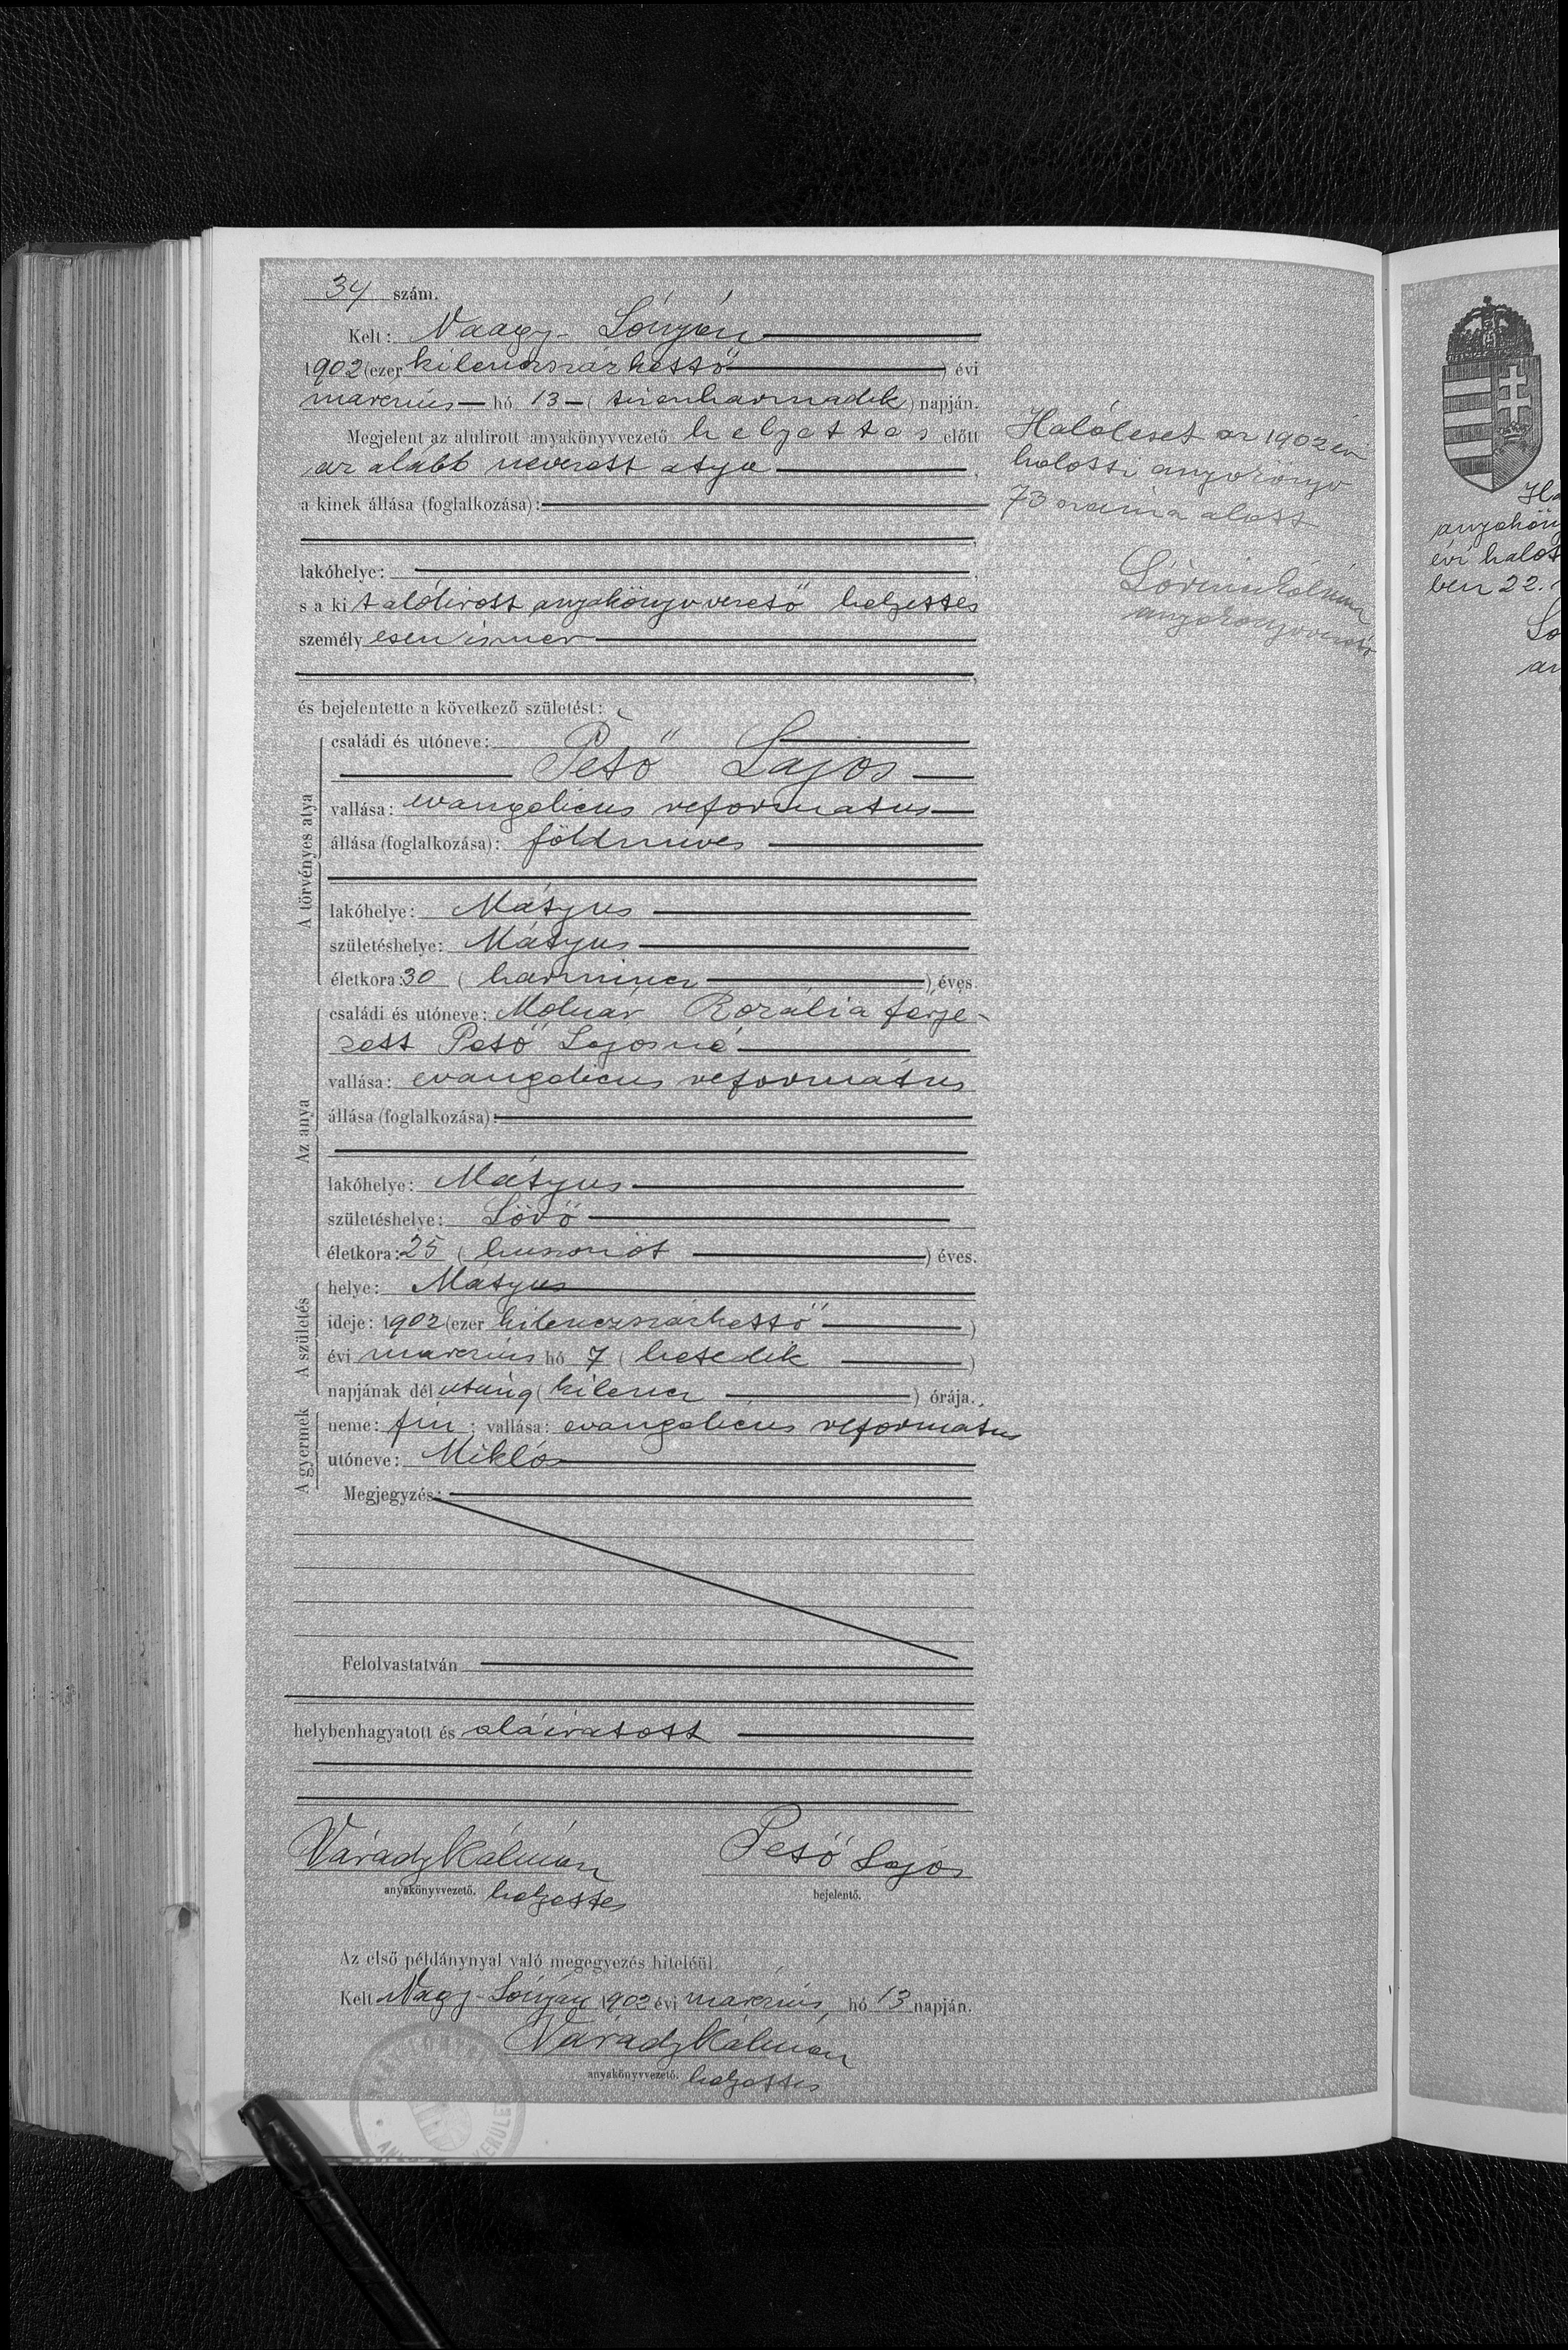 34 szám.
Kelt: Naagy-Lónyán
1902 (ezer kilenczszázkettő) évi
marczius hó 13 (tizenharmadik) napján.
Megjelent az alulirott anyakönyvvezető helyettes előtt
az alább nevezett atya,
a kinek állása (foglalkozása):
lakóhelye:
s a kit alólirott anyakönyvvezető helyettes
személyesen ismer
és bejelentette a következő születést:
A törvényes atya
családi és utóneve:
Pető Lajos
vallása: evangelicus reformatus
állása (foglalkozása): földmives
lakóhelye: Mátyus
születéshelye: Mátyus
életkora: 30 (harmincz) éves.
Az anya
családi és utóneve: Molnár Rozália férje-
zett Pető Lajosné
vallása: evangelicus református
állása (foglalkozása):
lakóhelye: Mátyus
születéshelye: Lövő
életkora: 25 (huszonöt) éves.
A születés
helye: Mátyus
ideje: 1902 (ezer kilenczszázkettő)
évi marczius hó 7 (hetedik)
napjának délutánig (kilencz) órája.
A gyermek
neme: fiu; vallása: evangelicus reformatus
utóneve: Miklós
Megjegyzés:
Felolvastatván
helybenhagyatott és aláiratott
Várady Kálmán Pető Lajos
anyakönyvvezető. helyettes bejelentő.
Az első példánynyal való megegyezés hiteléül.
Kelt Nagy-Lónyán 1902 évi marczius, hó 13 napján.
Várady Kálmán
anyakönyvvezető. helyettes
Halóleset az 1902 évi
halotti anyakönyv
73 száma alatt
anyakönyvvezető
Ha
anyakön
évi halot
ben 22.
Lo
an